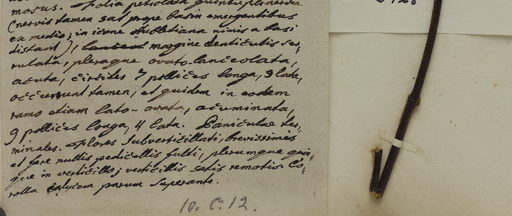 mosus. Folia petiolata quintuplinervia
(nervis tamen sat prope basin emergentibus
ex medio; in icone nimis a basi
distant), margine denticulis ser-
rulata, pleraque ovato-lanceolata,
acuta, circiter 7 pollices longa, 3 lata,
occurrunt tamen, et quidem in eodem
ramo etiam lato-ovata, acuminata,
9 pollices longa, 4 lata. Paniculae ter-
minales. Flores subverticillati, brevissimis
et fere nullis pedicellis fulti, plerumque quin-
que in verticillo; verticillis satis remotis. Co-
rolla calycem parum superante.
10. C. 12.